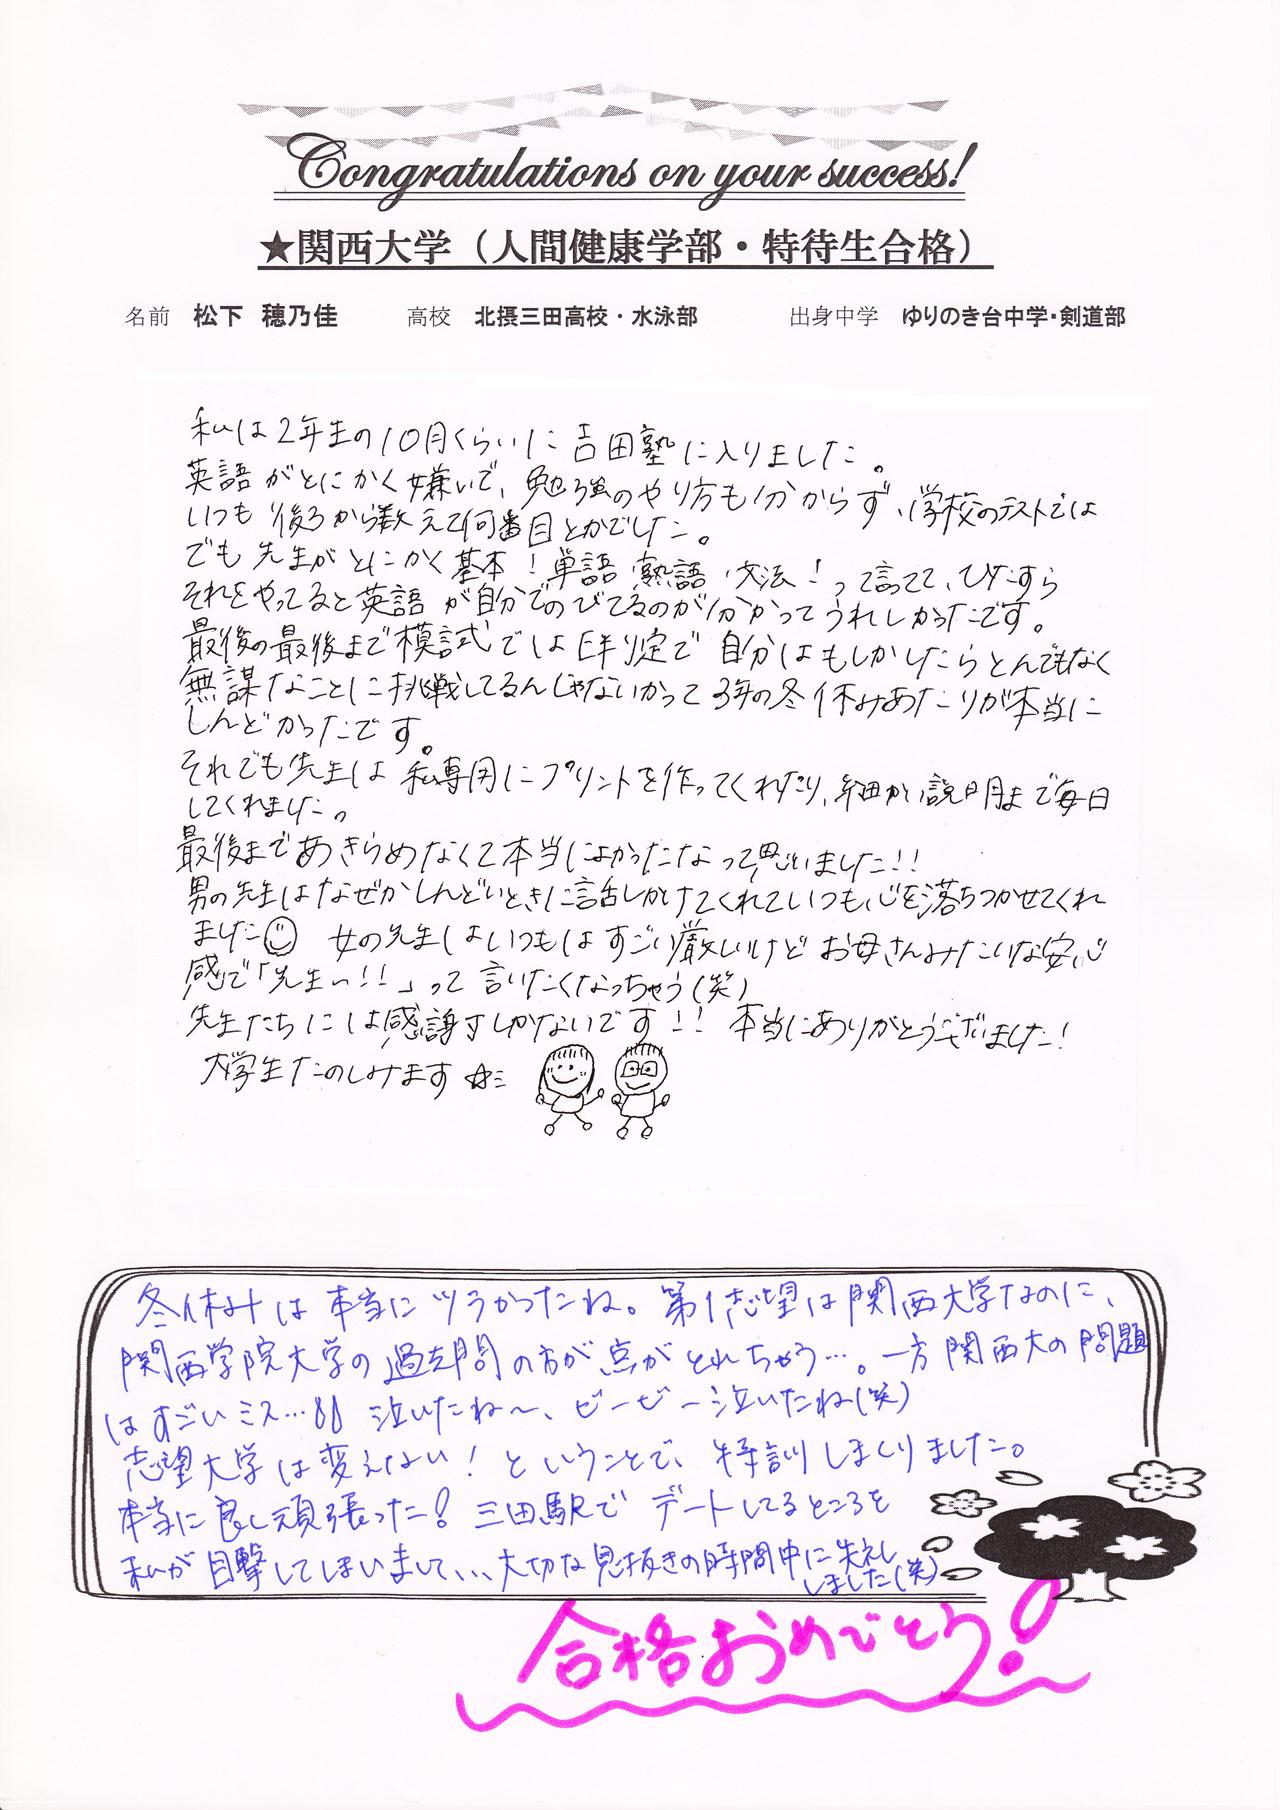 Congratulations on your success!
★関西大学（人間健康学部・特待生合格）
名前 松下 穂乃佳 高校 北摂三田高校・水泳部 出身中学 ゆりのき台中学・剣道部
私は2年生の10月くらいに吉田塾に入りました。
英語がとにかく嫌いで、勉強のやり方も分からず、学校のテストでは
いつも後ろから数えて何番目とかでした。
でも先生がとにかく基本！単語、熟語、文法！って言ってて、ひたすら
それをやってると英語が自分でのびてるのが分かってうれしかったです。
最後の最後まで模試ではE判定で自分はもしかしたらとんでもなく
無謀なことに挑戦してるんじゃないかって3年の冬休みあたりが本当に
しんどかったです。
それでも先生は私専用にプリントを作ってくれたり、細かい説明まで毎日
してくれました。
最後まであきらめなくて本当によかったなって思いました!!
男の先生はなぜかしんどいときに話しかけてくれていつも心を落ちつかせてくれ
ました 女の先生はいつもはすごい厳しいけどお母さんみたいな安心
感で「先生〜!!」って言いたくなっちゃう(笑)
先生たちには感謝しかないです!! 本当にありがとうございました!
大学生たのしみます☆ミ
冬休みは本当にツラかったね。第1志望は関西大学なのに、
関西学院大学の過去問の方が点がとれちゃう…。一方関西大の問題
はすごいミス…!! 泣いたね〜、ビービー泣いたね(笑)
志望大学は変えない！ということで、特訓しまくりました。
本当に良く頑張った！三田駅でデートしてるところを
私が目撃してしまいまして、、、大切な息抜きの時間中に失礼し
しました(笑)
合格おめでとう！